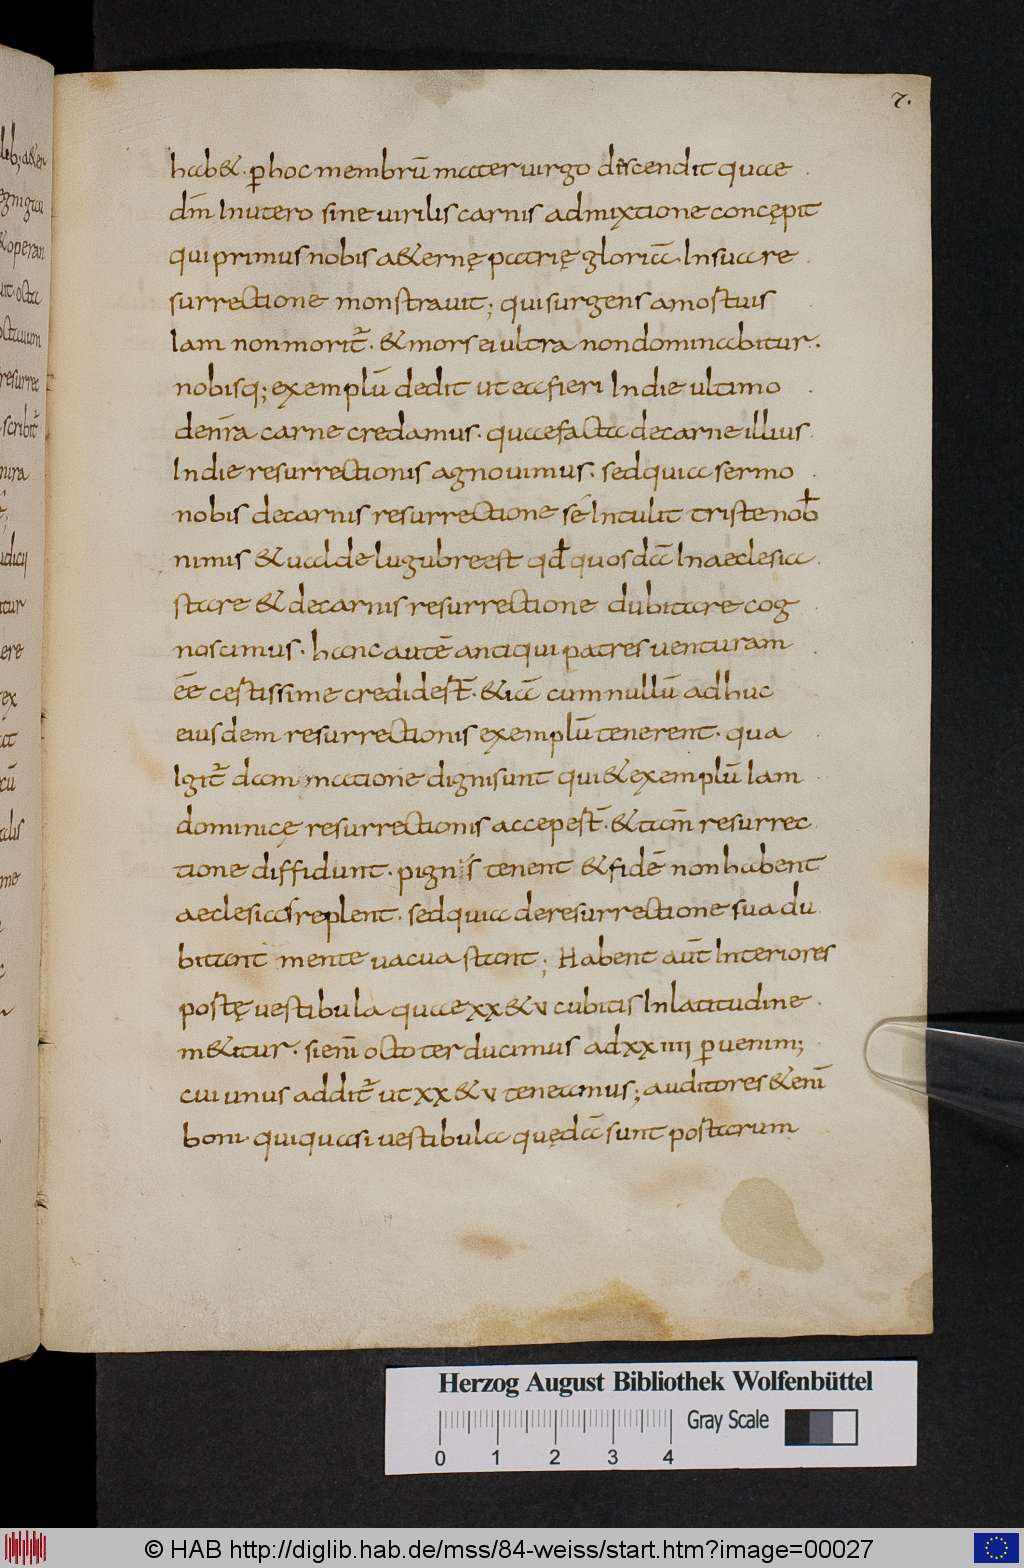 7.
hab&. ꝑ hoc membrū mater uirgo discendit quae
dm̄ In utero sine uirilis carnis admixtione concępit
qui primus nobis a&ernę patrię gloriā. In sua re
surrectione monstrauit; qui surgens a mostuis
Iam non morit̄. & mors ei ultra non dominabitur.
nobisq; exemplū dedit ut ea fieri In die ultimo
de nr̄a carne credamus. quae facta de carne illius
In die resurrectionis agnouimus. sed quia sermo
nobis de carnis resurrectione se Intulit triste nob̄
nimis & ualde lugubre est qđ quosdā In aeclesia
stare & de carnis resurrectione dubitare cog
noscimus. hanc autē antiqui patres venturam
eē cestissime crediderst̄. & iā cum nullū adhuc
eiusdem resurrectionis exemplū tenerent. qua
Igit̄ damnatione digni sunt qui & exemplū Iam
dominicę resurrectionis accepest̄. & tam̄ resurrec
tione diffidunt. pignus tenent & fidē non habent
aeclesias replent. sed quia de resurrectione sua du
bitant mente vacua stant; Habent aut̄ Interiores
postę vestibula quae xx & v cubitis In latitudine
m&itur. si enī octo ter ducimus ad xxiiii ꝑuenim;
cui unus addit̄ ut xx & v teneamus; auditores & enī
boni qui quasi vestibula quędā sunt postarum
Herzog August Bibliothek Wolfenbüttel
Gray Scale
0 1 2 3 4
© HAB http://diglib.hab.de/mss/84-weiss/start.htm?image=00027